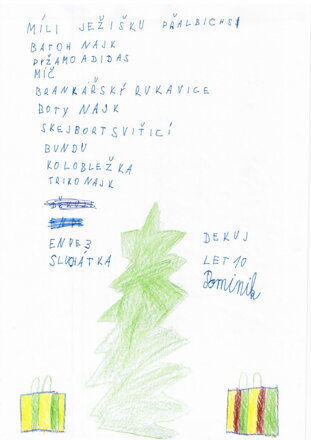 MÍLI JEŽIŠKU PŘÁLBICHSI
BATOH NAJK
PYŽAMO ADIDAS
MÍČ
BRANKÁŘSKÝ RUKAVICE
BOTY NAJK
SKEJBORT SVIŤICÍ
BUNDU
KOLOBLEŽKA
TRIKO NAJK
ENDE3
SLUCHÁTKA
DEKUJ
LET 10
Dominik